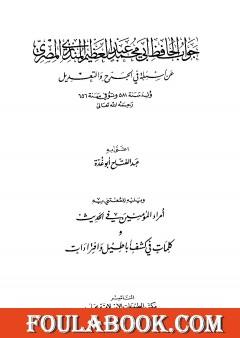 جواب الحافظ أبي محمد عبد العظيم المنذري المصري
عن أسئلة في الجرح والتعديل
ولد سنة ٥٨١ وتوفي سنة ٦٥٦
رحمه الله تعالى
اعتنى به
عبد الفتاح أبو غدة
ويليه للمعتني به
أمراء المؤمنين في الحديث
و
كلمات في كشف أباطيل وافتراءات
الناشر
مكتب المطبوعات الإسلامية
FOULABOOK.COM